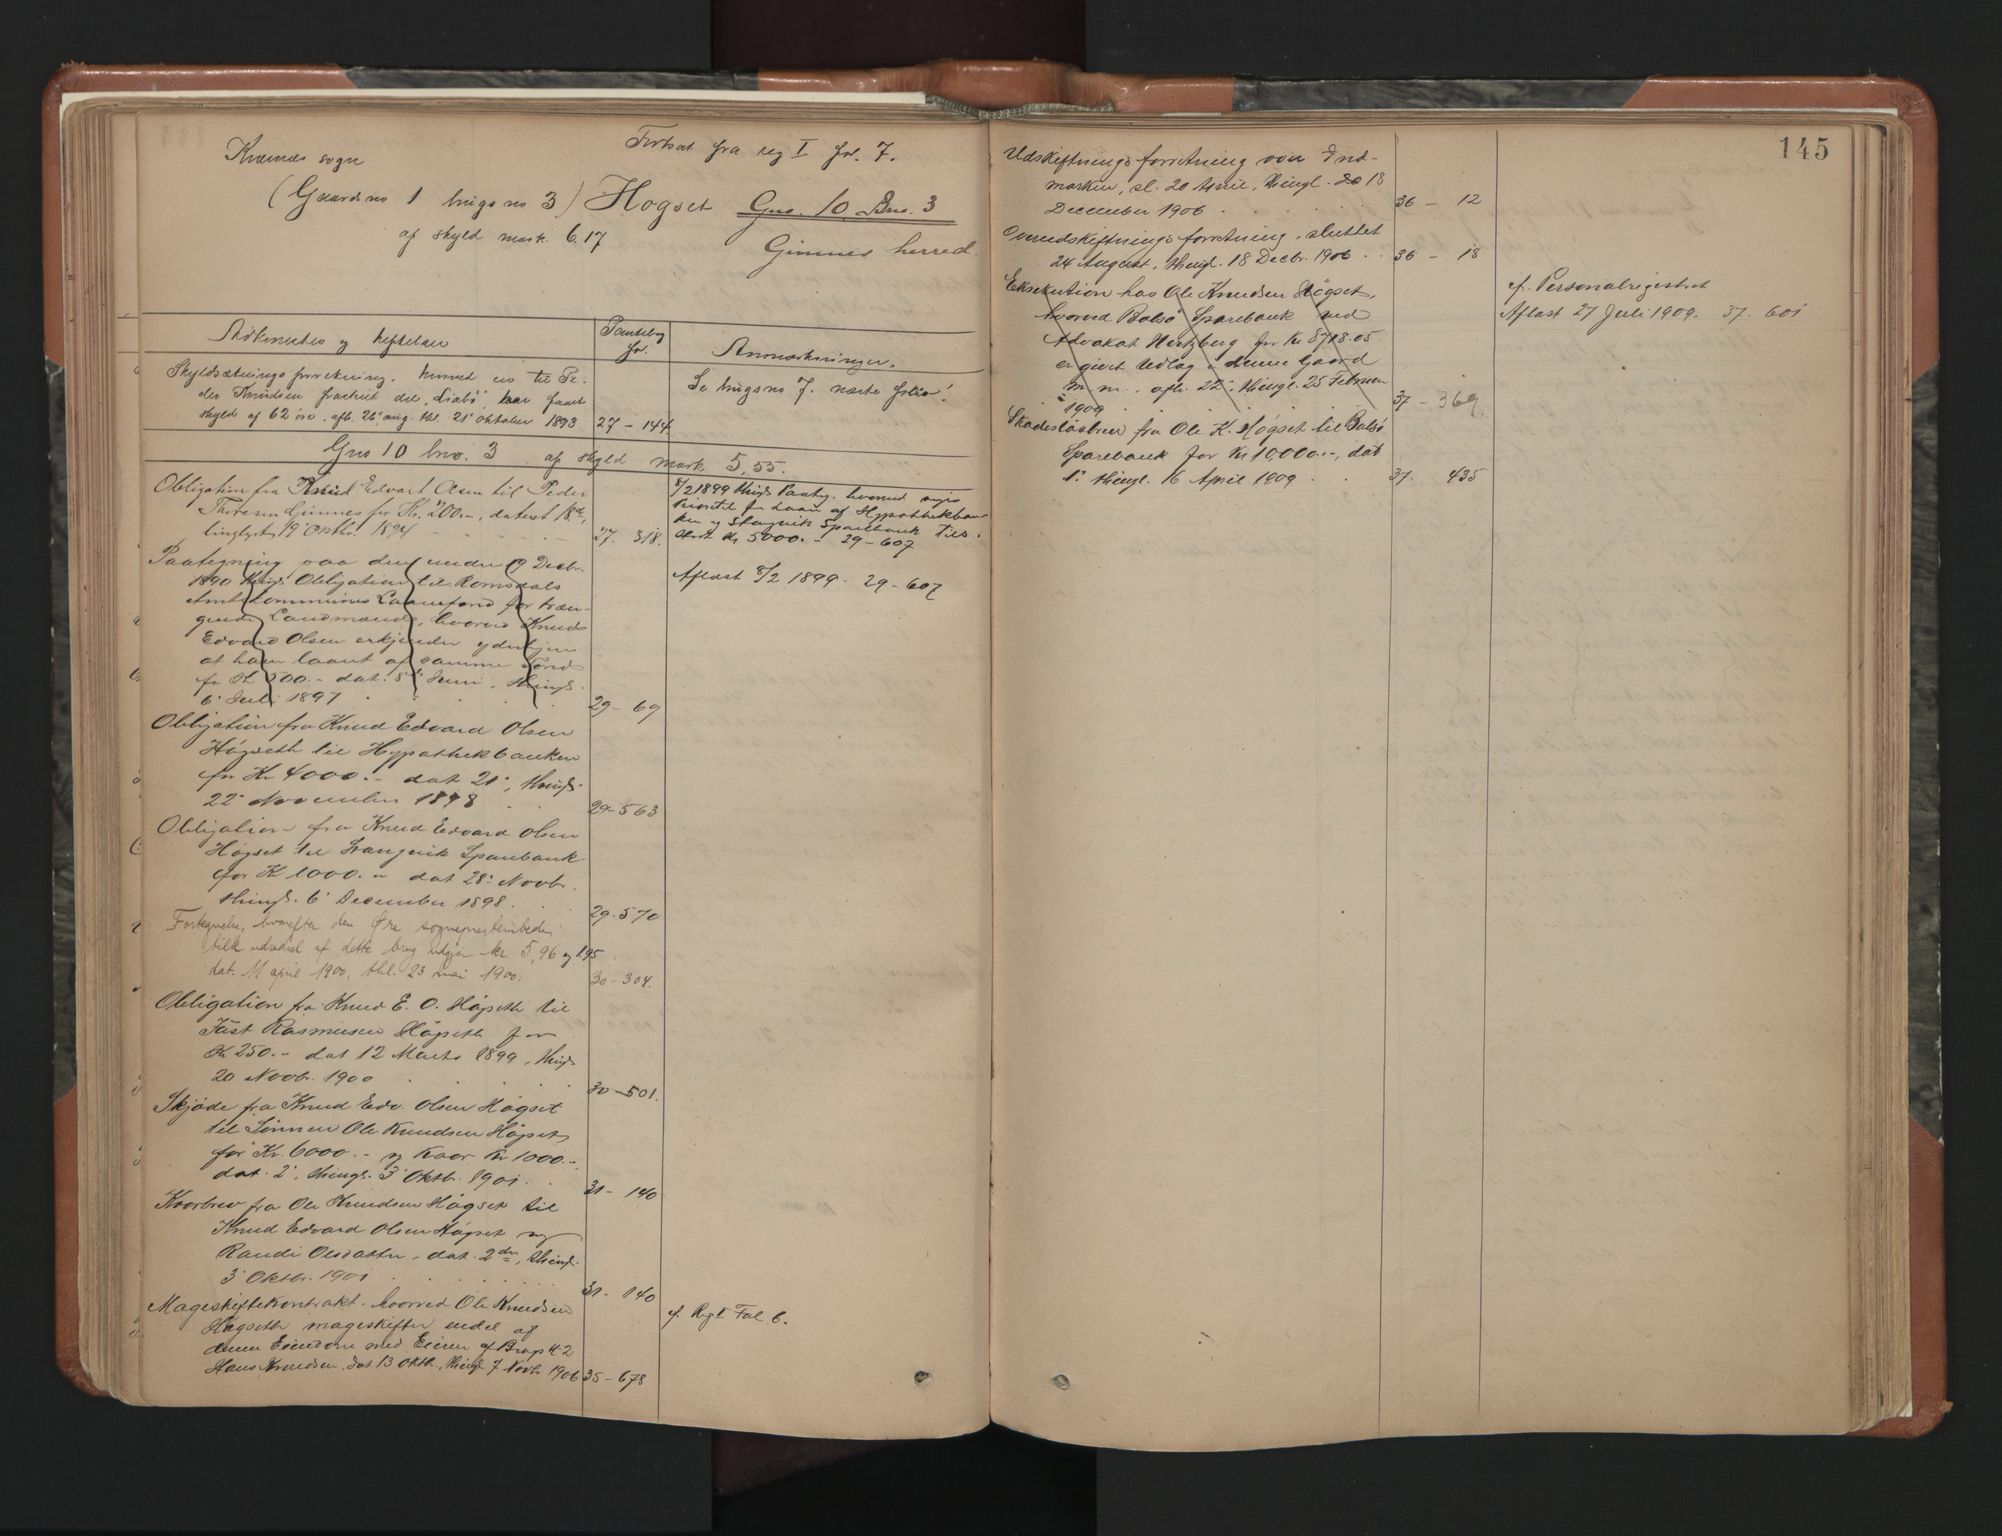 Kvernes sogn
Fortsat fra reg I fol. 7.
(Gaards no 1 brugs no 3) Høgset Gno. 10 Bno. 3
af skyld mark 6.17
Gimnes herred.
Adkomster og heftelser
Pantebog fol.
Anmærkninger.
Skyldsætningsforretning, hvorved en til Pe-
der Knudsen frasolgt del, har faaet
skyld af 62 øre, afh. 26 aug. thl. 21 oktober 1893 27 – 144
Se brugsno 7. næste folio!
Gno 10 bno. 3 af skyld mark 5,55.
Obligation fra Knud Edvart Olsen til Peder
Thoresen Gimnes for Kr. 200.–, dateret 18de,
tinglyst 19 Oktbr. 1894 27. 318.
8/2 1899 thingl. Paateg. hvorved viges
Prioritet for Laan af Hypothekban-
ken og Stangvik Sparebank Tils.
Kr 5000.– 29–607
Paategning paa den under 9 Decbr.
1890 thingl. Obligation til Romsdals
Amtskommunes Laanefond for træn-
gende Landmænd, hvorved Knud
Edvard Olsen erkjender yderligere
at have laant af samme Fond
for Kr 200.– dat. 5te Juni, thingl.
6 Juli 1897 29– 69
Aflæst 8/2 1899. 29–607
Obligation fra Knud Edvard Olsen
Høgseth til Hypothekbanken
for Kr 4000.– dat 21, thingl.
22 November 1898 29–563
Obligation fra Knud Edvard Olsen
Høgset til Stangvik Sparebank
for Kr 1000.– dat 28 Novbr.
thingl. 6 December 1898. 29–570
Fortegnelse, hvorefter den Øre sogneprestembede
tilk. udredsel af dette brug udgjør kr. 5,96 og 1.95
dat. 11 april 1900, thl. 23 mai 1900. 30–304.
Obligation fra Knud E. O. Høgseth til
Jøst Rasmusen Høgseth for
Kr 250.– dat 12 Marts 1899, thingl
20 Novbr. 1900 30–501.
Skjøde fra Knud Edv. Olsen Høgset
til Sønnen Ole Knudsen Høgset
for Kr. 6000.– og Kaar Kr 1000.–,
dat. 2, thingl. 3 Oktbr. 1901. 31– 140
Kaarbrev fra Ole Knudsen Høgset til
Knud Edvard Olsen Høgset og
Randi Olsdatter, dat. 2den, thingl.
3 Oktbr. 1901 31– 140
Mageskiftekontrakt hvorved Ole Knudsen
Høgseth mageskifter endel af
denne Eiendom med Eieren af Brugs no 2
Hans Knudsen, dat 13 Oktb., thingl 7 Novbr 1906 35–678
cf. Reg I Fol 6.
145
Udskiftningsforretning over Ind-
marken, sl. 20 April, thingl. 18
December 1906 36 – 12
Overudskiftningsforretning, sluttet
24 August, thingl. 18 Decbr. 1906 36 – 18
Eksekution hos Ole Knudsen Høgset,
hvorved Bolsø Sparebank ved
Advokat Hertzberg for Kr 8718.05
er givet Udlæg i denne Gaard
m. m., afh. 22, thingl. 25 Februar
1909 37 – 369.
cf. Personalregistret
Aflæst 27 Juli 1909. 37. 601
Skadesløsbrev fra Ole K. Høgset til Bolsø
Sparebank for Kr 10,000.–, dat
1, thingl. 16 April 1909 37. 435